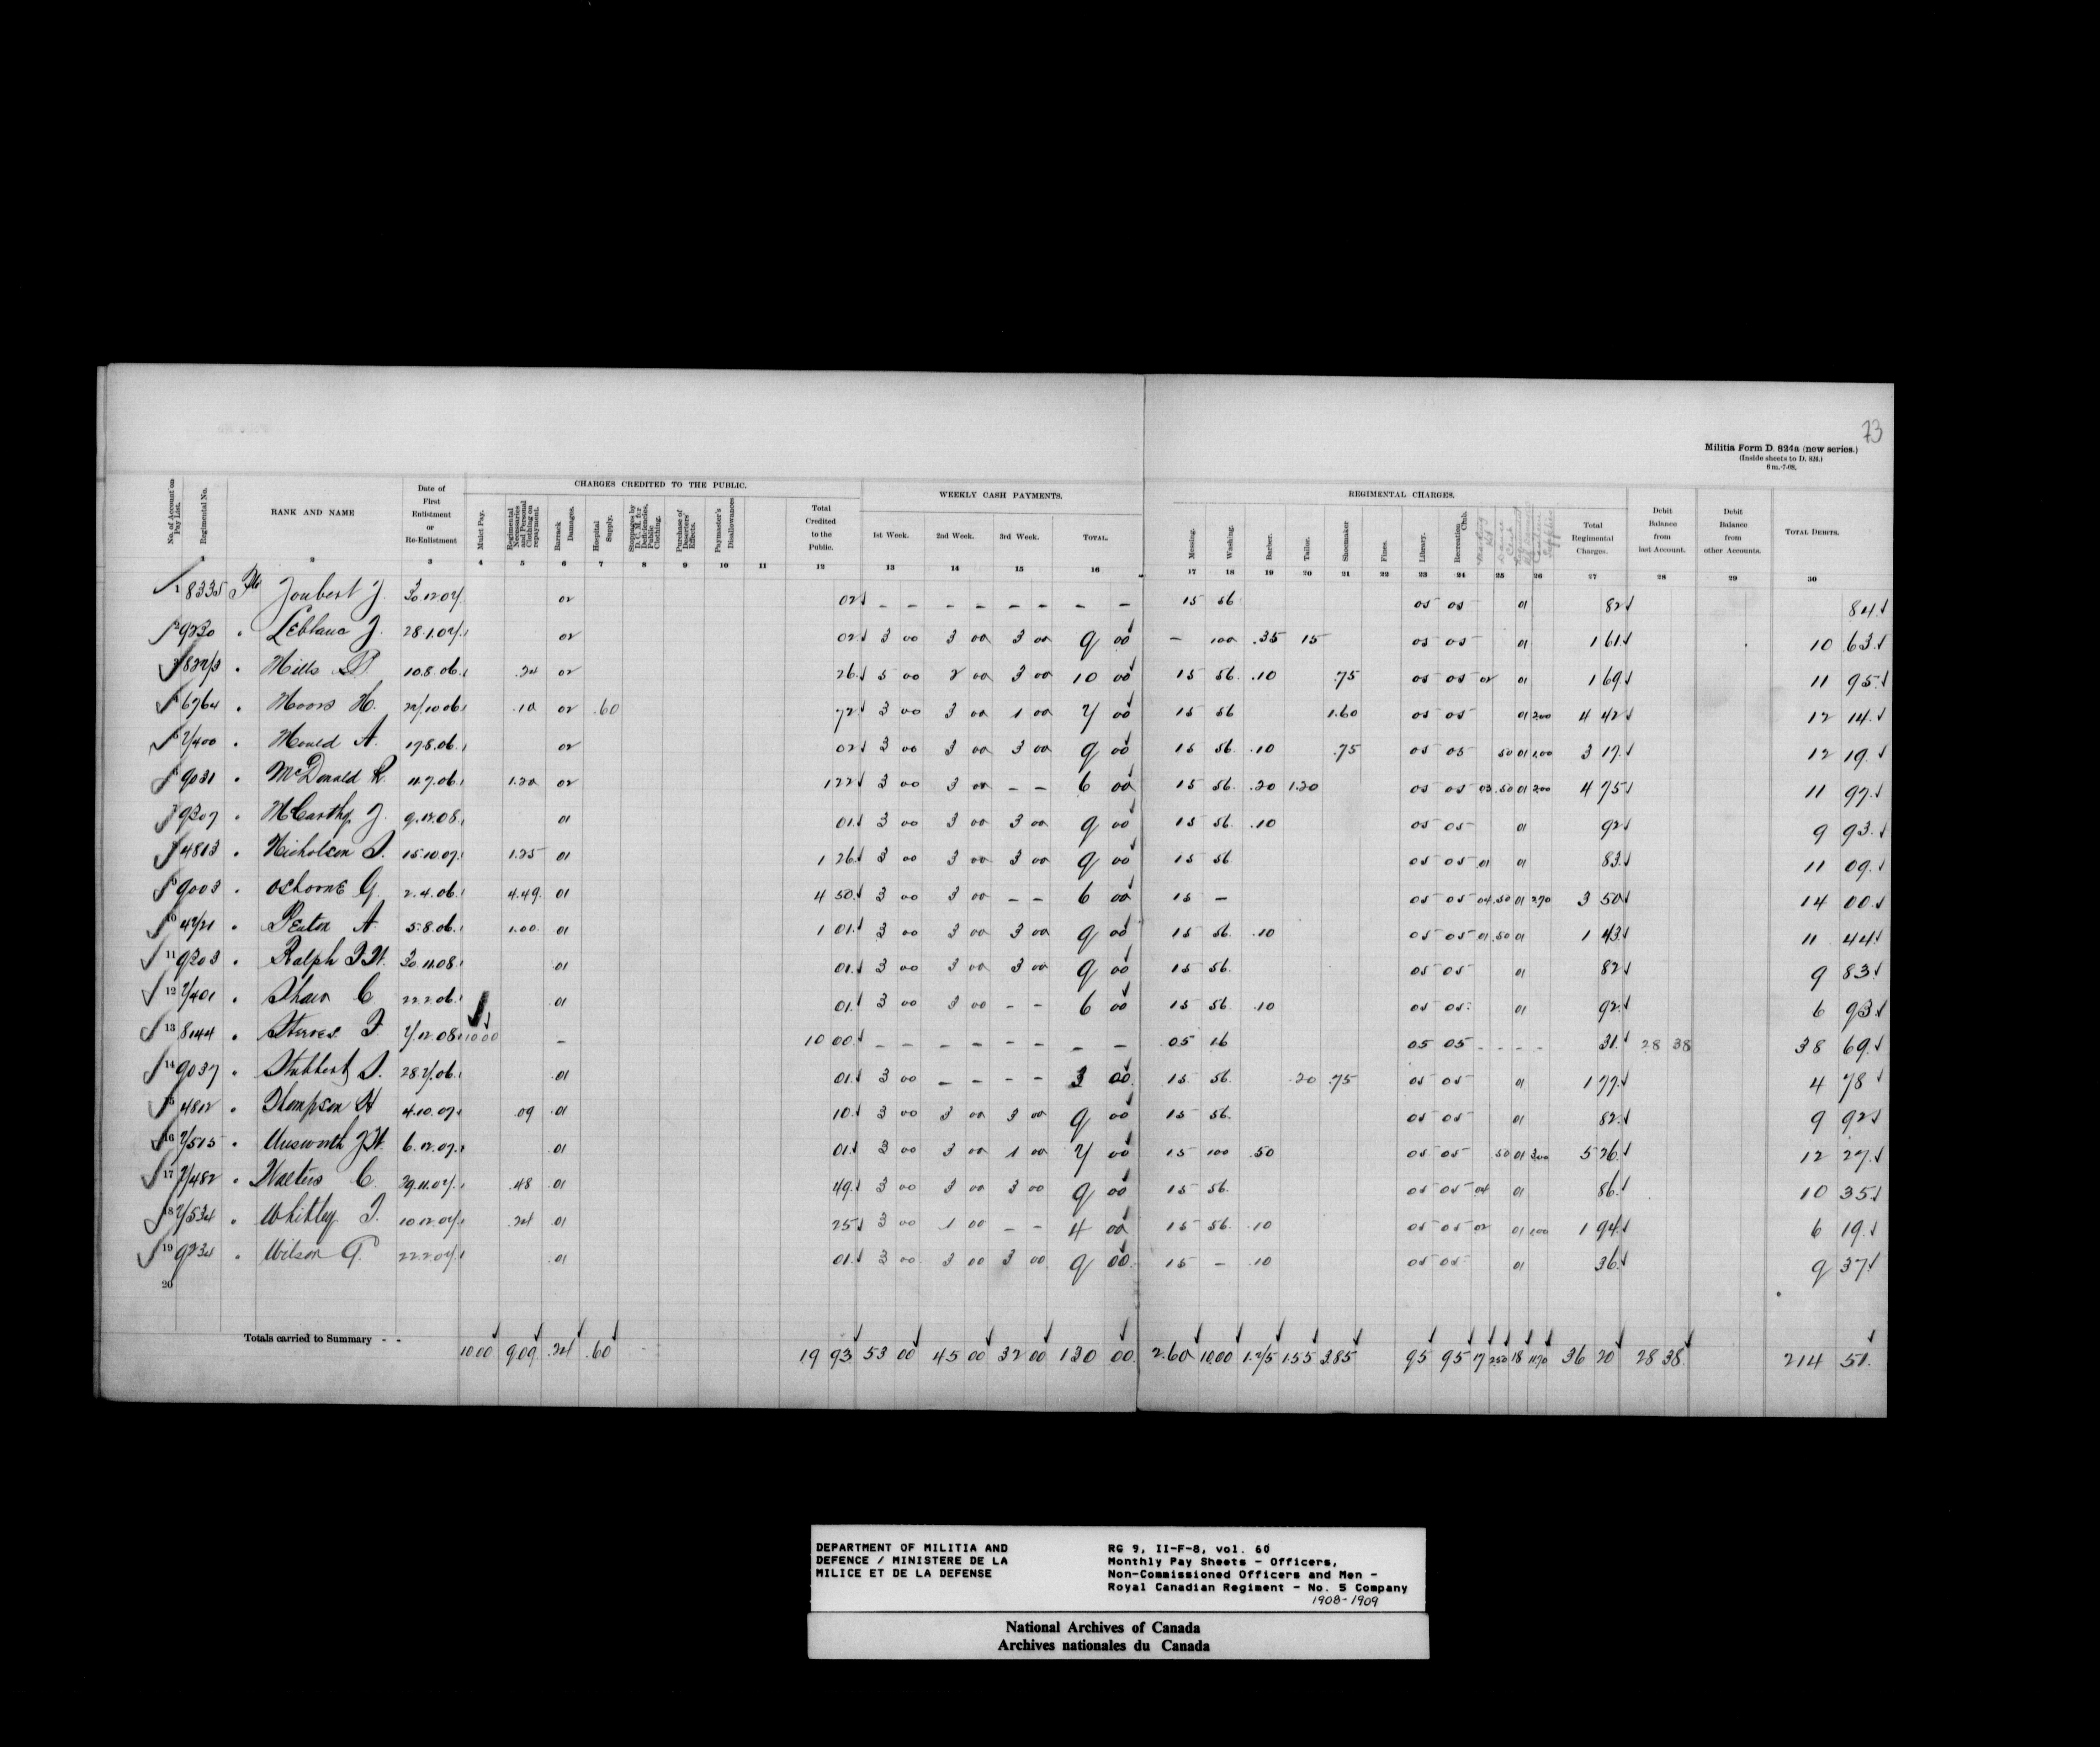 73
Militia Form D. 824a (new series.)
(Inside sheets to D. 824.)
6 m.-7-08.
CHARGES CREDITED TO THE PUBLIC. WEEKLY CASH PAYMENTS. REGIMENTAL CHARGES.
No. of Account on Pay List. Regimental No. RANK AND NAME Date of First Enlistment or Re-Enlistment Mulct Pay. Regimental Necessaries and Personal Clothing on repayment. Barrack Damages. Hospital Supply. Stoppages by D. C. M. for Deficiencies, Public Clothing. Purchase of Deserters' Effects. Paymaster's Disallowances Total Credited to the Public. 1st Week. 2nd Week. 3rd Week. TOTAL. Messing. Washing. Barber. Tailor. Shoemaker Fines. Library. Recreation Club. Total Regimental Charges. Debit Balance from last Account. Debit Balance from other Accounts. TOTAL DEBITS.
1 2 3 4 5 6 7 8 9 10 11 12 13 14 15 16 17 18 19 20 21 22 23 24 25 26 27 28 29 30
1 8335 Pte Joubert J. 30.12.07 02 02 - - - - - - - - 15 56 05 05 01 82 84
2 9230 " Leblanc J. 28.1.07 02 02 3 00 3 00 3 00 9 00 - 1 00 .35 15 05 05 01 1 61 10 63
3 8273 " Mills P. 10.8.06 .24 02 26 5 00 2 00 3 00 10 00 15 56 .10 .75 05 05 02 01 1 69 11 95
4 6764 " Moors H. 22/10.06 .10 02 .60 72 3 00 3 00 1 00 7 00 15 56 1.60 05 05 01 2.00 4 42 12 14
5 7400 " Mould A. 17.8.06 02 02 3 00 3 00 3 00 9 00 15 56 .10 .75 05 05 50 01 1.00 3 17 12 19
6 9031 " McDonald R. 11.7.06 1.20 02 1 22 3 00 3 00 - - 6 00 15 56 .20 1.20 05 05 03 .50 01 2.00 4 75 11 97
7 9207 " McCarthy J. 9.12.08 01 01 3 00 3 00 3 00 9 00 15 56 .10 05 05 01 92 9 93
8 4813 " Nicholson S. 15.10.07 1.25 01 1 26 3 00 3 00 3 00 9 00 15 56 05 05 01 01 83 11 09
9 9003 " Osborne G. 2.4.06 4.49 01 4 50 3 00 3 00 - - 6 00 15 - 05 05 04 .50 01 2.70 3 50 14 00
10 4721 " Peaton A. 5.8.06 1.00 01 1 01 3 00 3 00 3 00 9 00 15 56 .10 05 05 01 .50 01 1 43 11 44
11 9203 " Ralph F.W. 30.11.08 01 01 3 00 3 00 3 00 9 00 15 56 05 05 01 82 9 83
12 7401 " Shaw C. 22.2.06 01 01 3 00 3 00 - - 6 00 15 56 .10 05 05 01 92 6 93
13 8144 " Steeves F. 7.12.08 10 00 - 10 00 - - - - - - - - 05 16 05 05 - - - - 31 28 38 38 69
14 9037 " Stubbert S. 28.7.06 01 01 3 00 - - - - 3 00 15 56 .20 .75 05 05 01 1 77 4 78
15 4812 " Thompson H. 4.10.07 .09 01 10 3 00 3 00 3 00 9 00 15 56 05 05 01 82 9 92
16 7515 " Unsworth J.W. 6.12.07 01 01 3 00 3 00 1 00 7 00 15 1 00 .50 05 05 50 01 3.00 5 26 12 27
17 7482 " Walters C. 29.11.07 .48 01 49 3 00 3 00 3 00 9 00 15 56 05 05 04 01 86 10 35
18 7534 " Whitley T. 10.12.07 .24 01 25 3 00 1 00 - - 4 00 15 56 .10 05 05 02 01 1.00 1 94 6 19
19 9234 " Wilson G. 22.2.07 01 01 3 00 3 00 3 00 9 00 15 - .10 05 05 01 36 9 37
20
Totals carried to Summary - - 10.00 9.09 .24 .60 19 93 53 00 45 00 32 00 130 00 2.60 10.00 1.75 1.55 3.85 95 95 17 2.50 18 11.70 36 20 28 38 214 51
DEPARTMENT OF MILITIA AND
DEFENCE / MINISTERE DE LA
MILICE ET DE LA DEFENSE
RG 9, II-F-8, vol. 60
Monthly Pay Sheets - Officers,
Non-Commissioned Officers and Men -
Royal Canadian Regiment - No. 5 Company
1908-1909
National Archives of Canada
Archives nationales du Canada